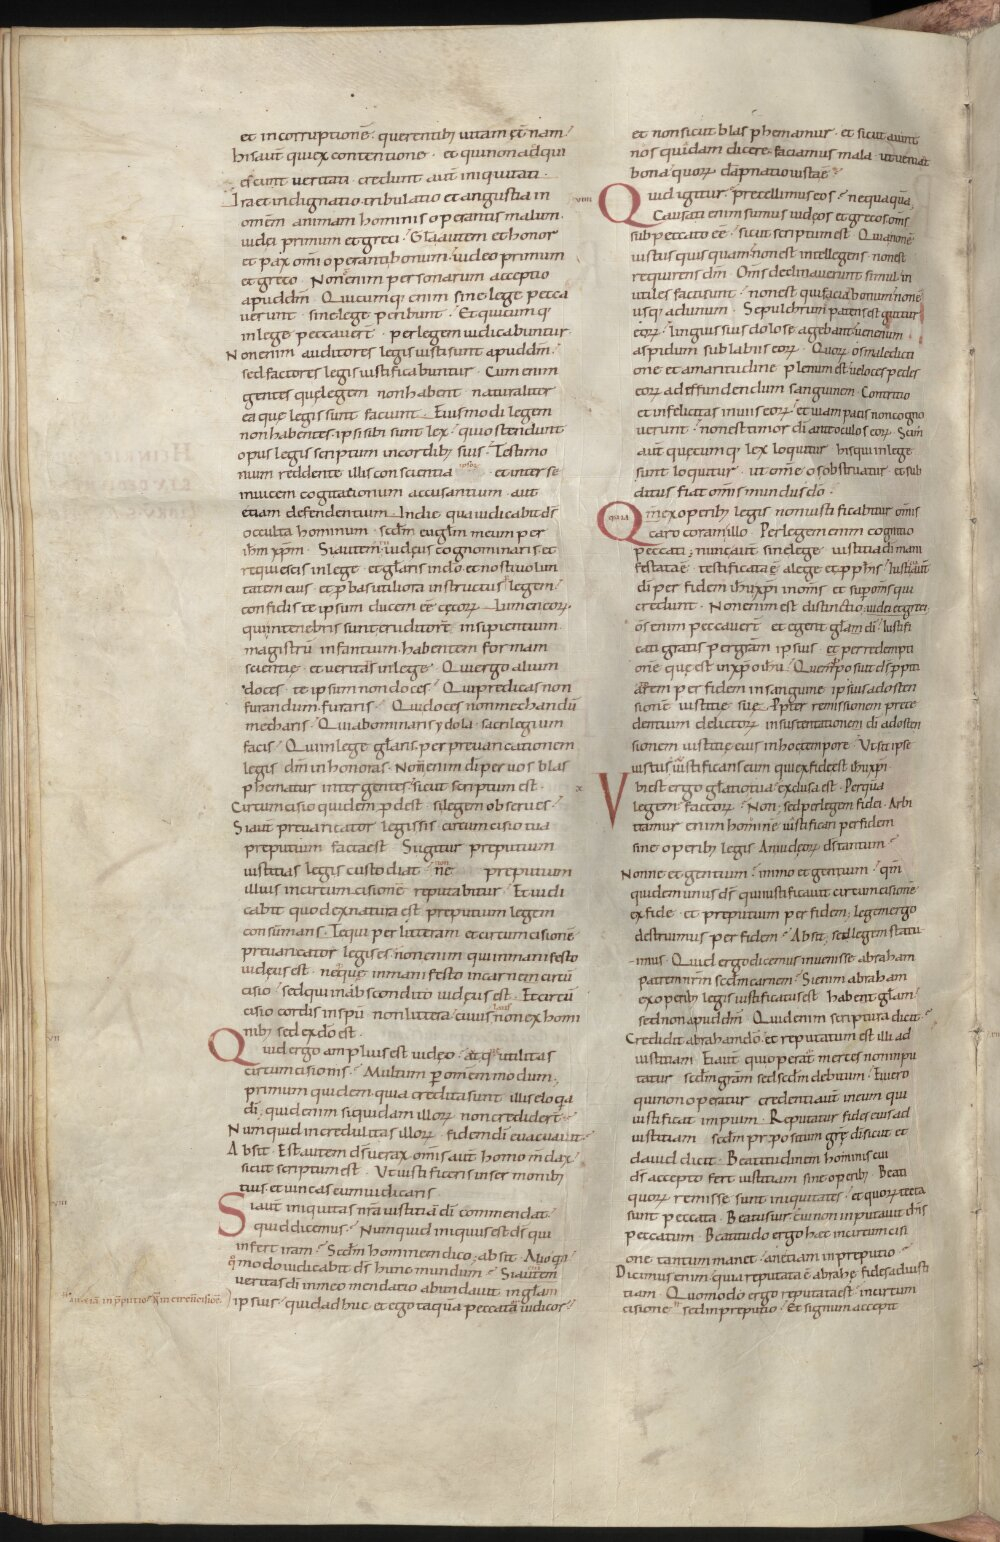 et incorruptionē. querentibꝫ uitam ęt̄nam.
his aut̄ qui ex contentione. et qui non adqui
escunt ueritati. credunt aut̄ iniquitati.
Ira et indignatio. tribulatio et angustia in
omēm animam hominis operantis malum.
iudei primum et greci. Gl̄a autem et honor
et pax om̄i operanti bonum. iudeo primum
et greco. Non enim personarum acceptio
apud dm̄. Quicumqꝫ enim sine lege pecca
uerunt. sine lege peribunt. Et quicumqꝫ
in lege peccauer̄. per legem iudicabuntur.
Non enim auditores legis iusti sunt apud dm̄.
sed factores legis iustificabuntur. Cum enim
gentes quę legem non habent. naturaliter
ea que legis sunt faciunt. Eiusmodi legem
non habentes. ipsi sibi sunt lex. qui ostendunt
opus legis scriptum in cordibꝫ suis. Testimo
nium reddente illis conscientia ipsoꝝ et inter se
inuicem cogitationum accusantium. aut
etiam defendentium. In die qua iudicabit ds̄
occulta hominum. scd̄m eugl̄m meum per
ih̄m xp̄m. Si autem tu iudęus cognominaris et
requiescis in lege. et gl̄aris in dō. et nosti uolun
tatem eius. et ꝓbas utiliora instructus ꝑ legem.
confidis te ipsum ducem eē cęcoꝝ. Lumen eoꝝ.
qui in tenebris sunt. eruditorē insipientium.
magistrū infantium. habentem formam
scientię. et ueritatis in lege. Qui ergo alium
doces. te ipsum non doces. Qui predicas non
furandum. furaris. Qui doces non mechandū
mecharis. Qui abominaris ydola. sacrilegium
facis. Qui in lege gl̄aris. per preuaricationem
legis dm̄ inhonoras. Nomen enim dī per uos blas
phematur inter gentes. sicut scriptum est.
Circumcisio quidem ꝓdest. si legem obserues.
Si aut̄ preuaricator legis sis. circumcisio tua
preputium facta est. Si igitur preputium
iustitias legis custodiat. nonne preputium
illius in circumcisionē reputabitur. Et iudi
cabit quod ex natura est preputium legem
consūmans. Te qui per litteram et circumcisionē
preuaricator legis es. non enim qui in manifesto
iudęus est. neqꝫ quę in manifesto in carne circū
cisio. sed qui in abscondito iudęus est. Et circū
cisio cordis in spū. non littera. cuius laus non ex homi
nibꝫ sed ex dō est.
Quid ergo amplius est iudęo. aut quę utilitas
circumcisionis. Multum ꝑ omēm modum.
primum quidem. quia credita sunt illis eloqa
dī. quid enim si quidam illoꝝ non credider̄.
Numquid incredulitas illoꝝ. fidem dī euacuauit.
Absit. Est autem ds̄ uerax. om̄is aut̄ homo mdax.
sicut scriptum est. Ut iustificeris in sermonibꝫ
tuis. et uincas cum iudicaris.
Si aut̄ iniquitas nr̄a iustitiā dī commendat.
quid dicemus. Numquid iniquus est ds̄ qui
infert iram. Scd̄m hominem dico; absit. Alioqn̄
qͦmodo iudicabit ds̄ hunc mundum. Si autem
ueritas dī in meo mendatio abundauit in gl̄am
ipsius. quid adhuc et ego taqua peccator iudicor.
an etiā in p̄putio. in circūcisione.
et non sicut blasphemamur. et sicut aiunt
nos quidam dicere. faciamus mala ut ueniat
bona. quoꝝ dāpnatio iusta ē.
VIIII
Quid igitur. precellimus eos. nequaquā.
Causati enim sumus iudęos et grecos om̄s
sub peccato eē. sicut scriptum est. Quia non ē
iustus quisquam. non est intellegens. non est
requirens dm̄. Om̄s declinauerunt simul in
utiles facti sunt. non est qui faciat bonum. non ē
usqꝫ ad unum. Sepulchrum patens est guttur
eoꝝ. linguis suis dolose agebant. uenenum
aspidum sub labiis eoꝝ. Quoꝝ os maledicti
one et amaritudine plenum est. ueloces pedes
eoꝝ ad effundendum sanguinem. Contritio
et infelicitas in uiis eoꝝ. et uiam pacis non cogno
uerunt. non est timor dī ante oculos eoꝝ. Scim̄
aut̄ quęcumqꝫ lex loquitur. his qui in lege
sunt loquitur. ut om̄e os obstruatur. et sub
ditus fiat om̄is mundus dō.
Quia
Qm̄ ex operibꝫ legis non iustificabitur om̄is
caro coram illo. Per legem enim cognitio
peccati; nunc aut̄ sine lege iustitia dī mani
festata ē. testificata ē a lege et ꝓphis. Iustitia aut̄
dī per fidem ih̄u xp̄i in om̄s et sup om̄s qui
credunt. Non enim est distinctio iudei et greci
om̄s enim peccauer̄ et egent gl̄am dī. Iustifi
cati gratis per grām ipsius. et per redempti
onē. quę est in xp̄o ih̄u. Quem ꝓposuit ds̄ ꝓpiti
atorem per fidem in sanguine ipsius ad osten
sionē iustitię suę. Ppter remissionem prece
dentium delictoꝝ in sustentationem dī ad osten
sionem iustitię eius in hoc tempore. Ut sit ipse
iustus et iustificans eum qui ex fide est ih̄u xp̄i.
X
Ubi est ergo gl̄atio tua. exclusa est. Per quā
legem. factoꝝ. Non; sed per legem fidei. Arbi
tramur enim hominē iustificari per fidem
sine operibꝫ legis. An iudęoꝝ ds̄ tantum.
Nonne et gentium. immo et gentium. qm̄
quidem unus ds̄ qui iustificauit circumcisionē
ex fide. et preputium per fidem; legem ergo
destruimus per fidem. Absit; sed legem statu
imus. Quid ergo dicemus inuenisse abraham
patrem nr̄m scd̄m carnem. Si enim abraham
ex operibꝫ legis iustificatus est. habent gl̄am.
sed non apud dm̄. Quid enim scriptura dicit.
Credidit abraham dō. et reputatum est illi ad
iustitiam. Ei aut̄ qui operat̄ merces non inpu
tatur. scd̄m grām sed scd̄m debitum. Ei uero
qui non operatur credenti aut̄ in eum qui
iustificat impium. Reputatur fides eius ad
iustitiam. scd̄m ppositum grē dī sicut et
dauid dicit. Beatitudinem hominis cui
ds̄ accepto fert iustitiam sine operibꝫ. Beati
quoꝝ remisse sunt iniquitates. et quoꝝ tecta
sunt peccata. Beatus uir cui non inputauit dn̄s
peccatum. Beatitudo ergo hęc in circumcisi
one tantum manet. an etiam in preputio.
Dicimus enim. quia reputata ē abrahę fides ad iusti
tiam. Quomodo ergo reputata est. in circum
cisione. sed in preputio. Et signum accepit